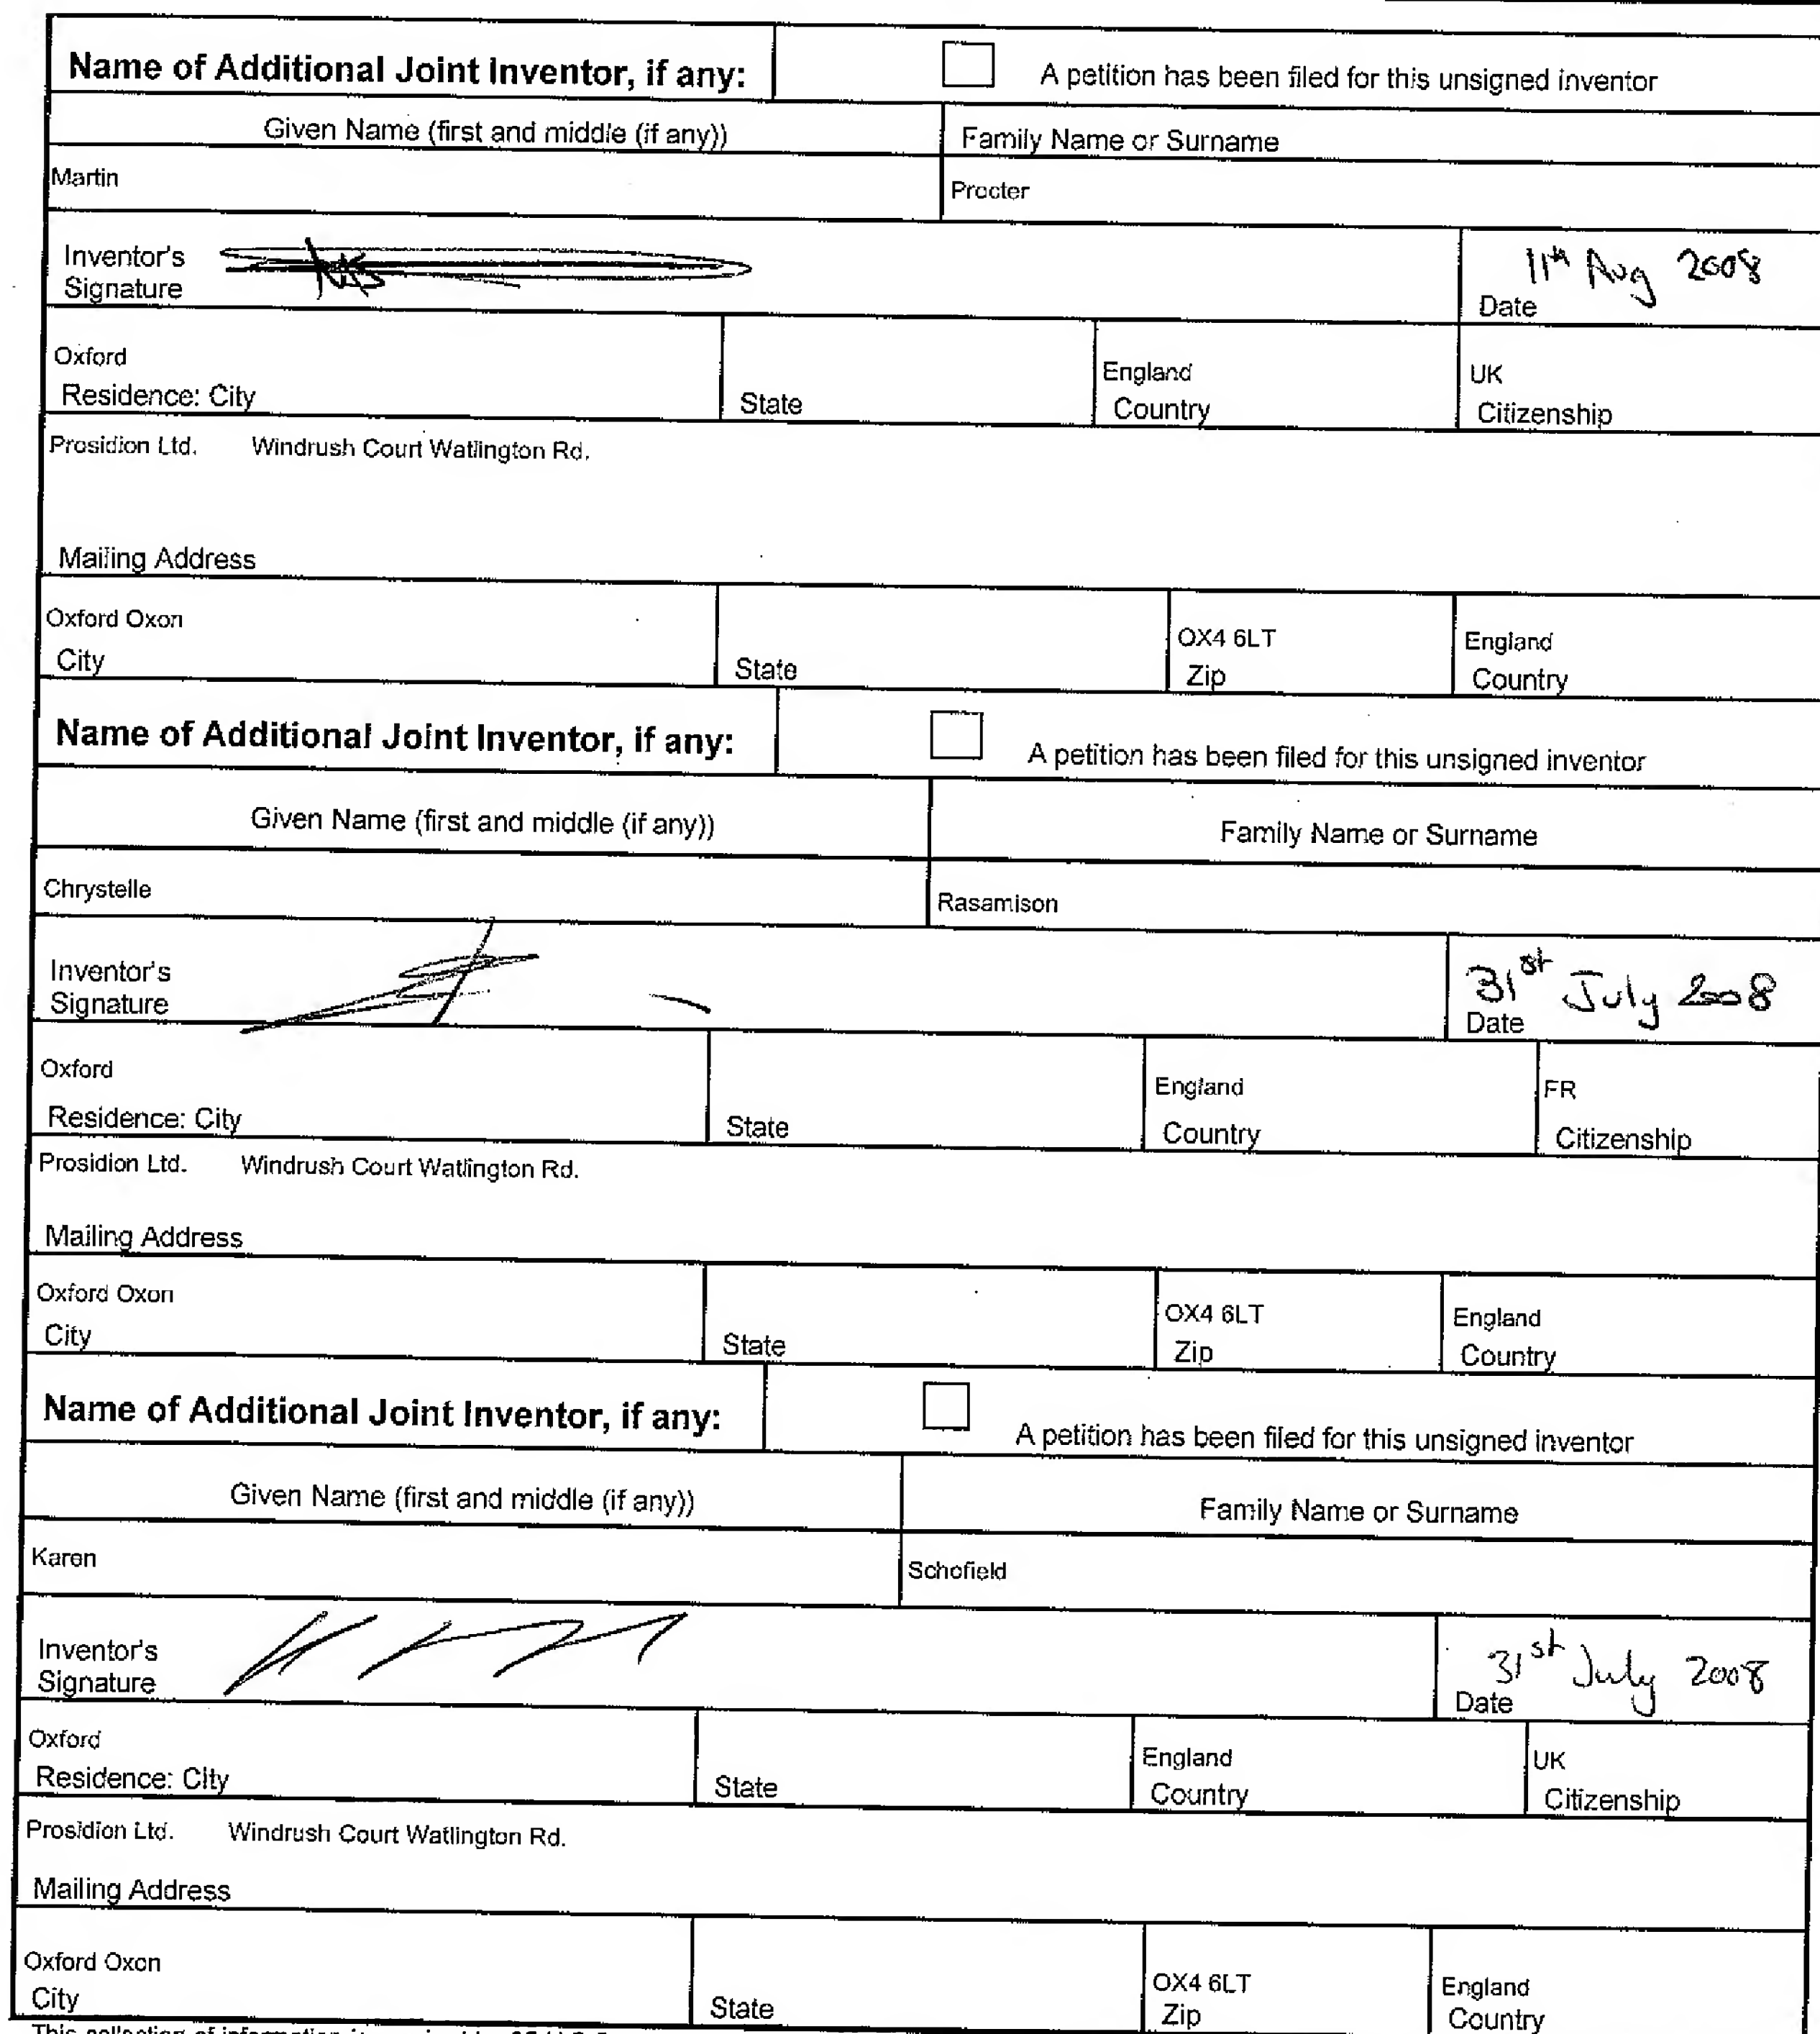 Name of Additional Joint Inventor, if any: A petition has been filed for this unsigned inventor
Given Name (first and middle (if any)) Family Name or Surname
Martin Procter
Inventor's
Signature
11th Aug 2008
Date
Oxford England UK
Residence: City State Country Citizenship
Prosidion Ltd. Windrush Court Watlington Rd.
Mailing Address
Oxford Oxon OX4 6LT England
City State Zip Country
Name of Additional Joint Inventor, if any: A petition has been filed for this unsigned inventor
Given Name (first and middle (if any)) Family Name or Surname
Chrystelle Rasamison
Inventor's
Signature
31st July 2008
Date
Oxford England FR
Residence: City State Country Citizenship
Prosidion Ltd. Windrush Court Watlington Rd.
Mailing Address
Oxford Oxon OX4 6LT England
City State Zip Country
Name of Additional Joint Inventor, if any: A petition has been filed for this unsigned inventor
Given Name (first and middle (if any)) Family Name or Surname
Karen Schofield
Inventor's
Signature
31st July 2008
Date
Oxford England UK
Residence: City State Country Citizenship
Prosidion Ltd. Windrush Court Watlington Rd.
Mailing Address
Oxford Oxon OX4 6LT England
City State Zip Country